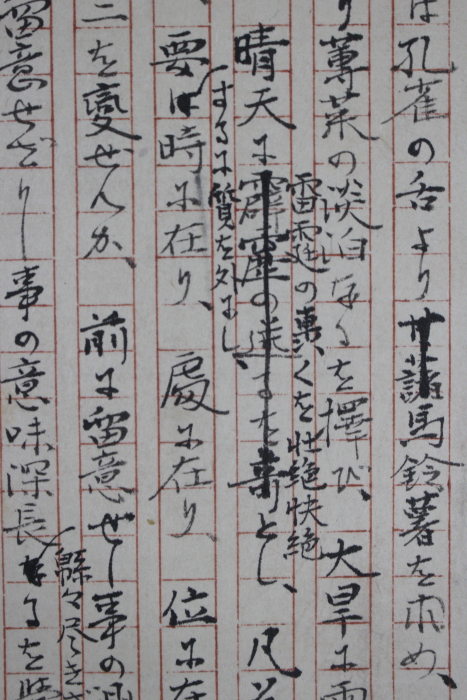 は孔雀の舌より甘藷馬鈴薯を求め、
り蓴菜の淡泊なるを擇び、大旱に雷
雷霆の轟くを壮絶快絶
晴天に霹靂の
とし、凡
するに質を外にし、
要は時に在り、處に在り、位に在
二を變せんか、前に留意せし事の
留意せざりし事の意味深長なるを